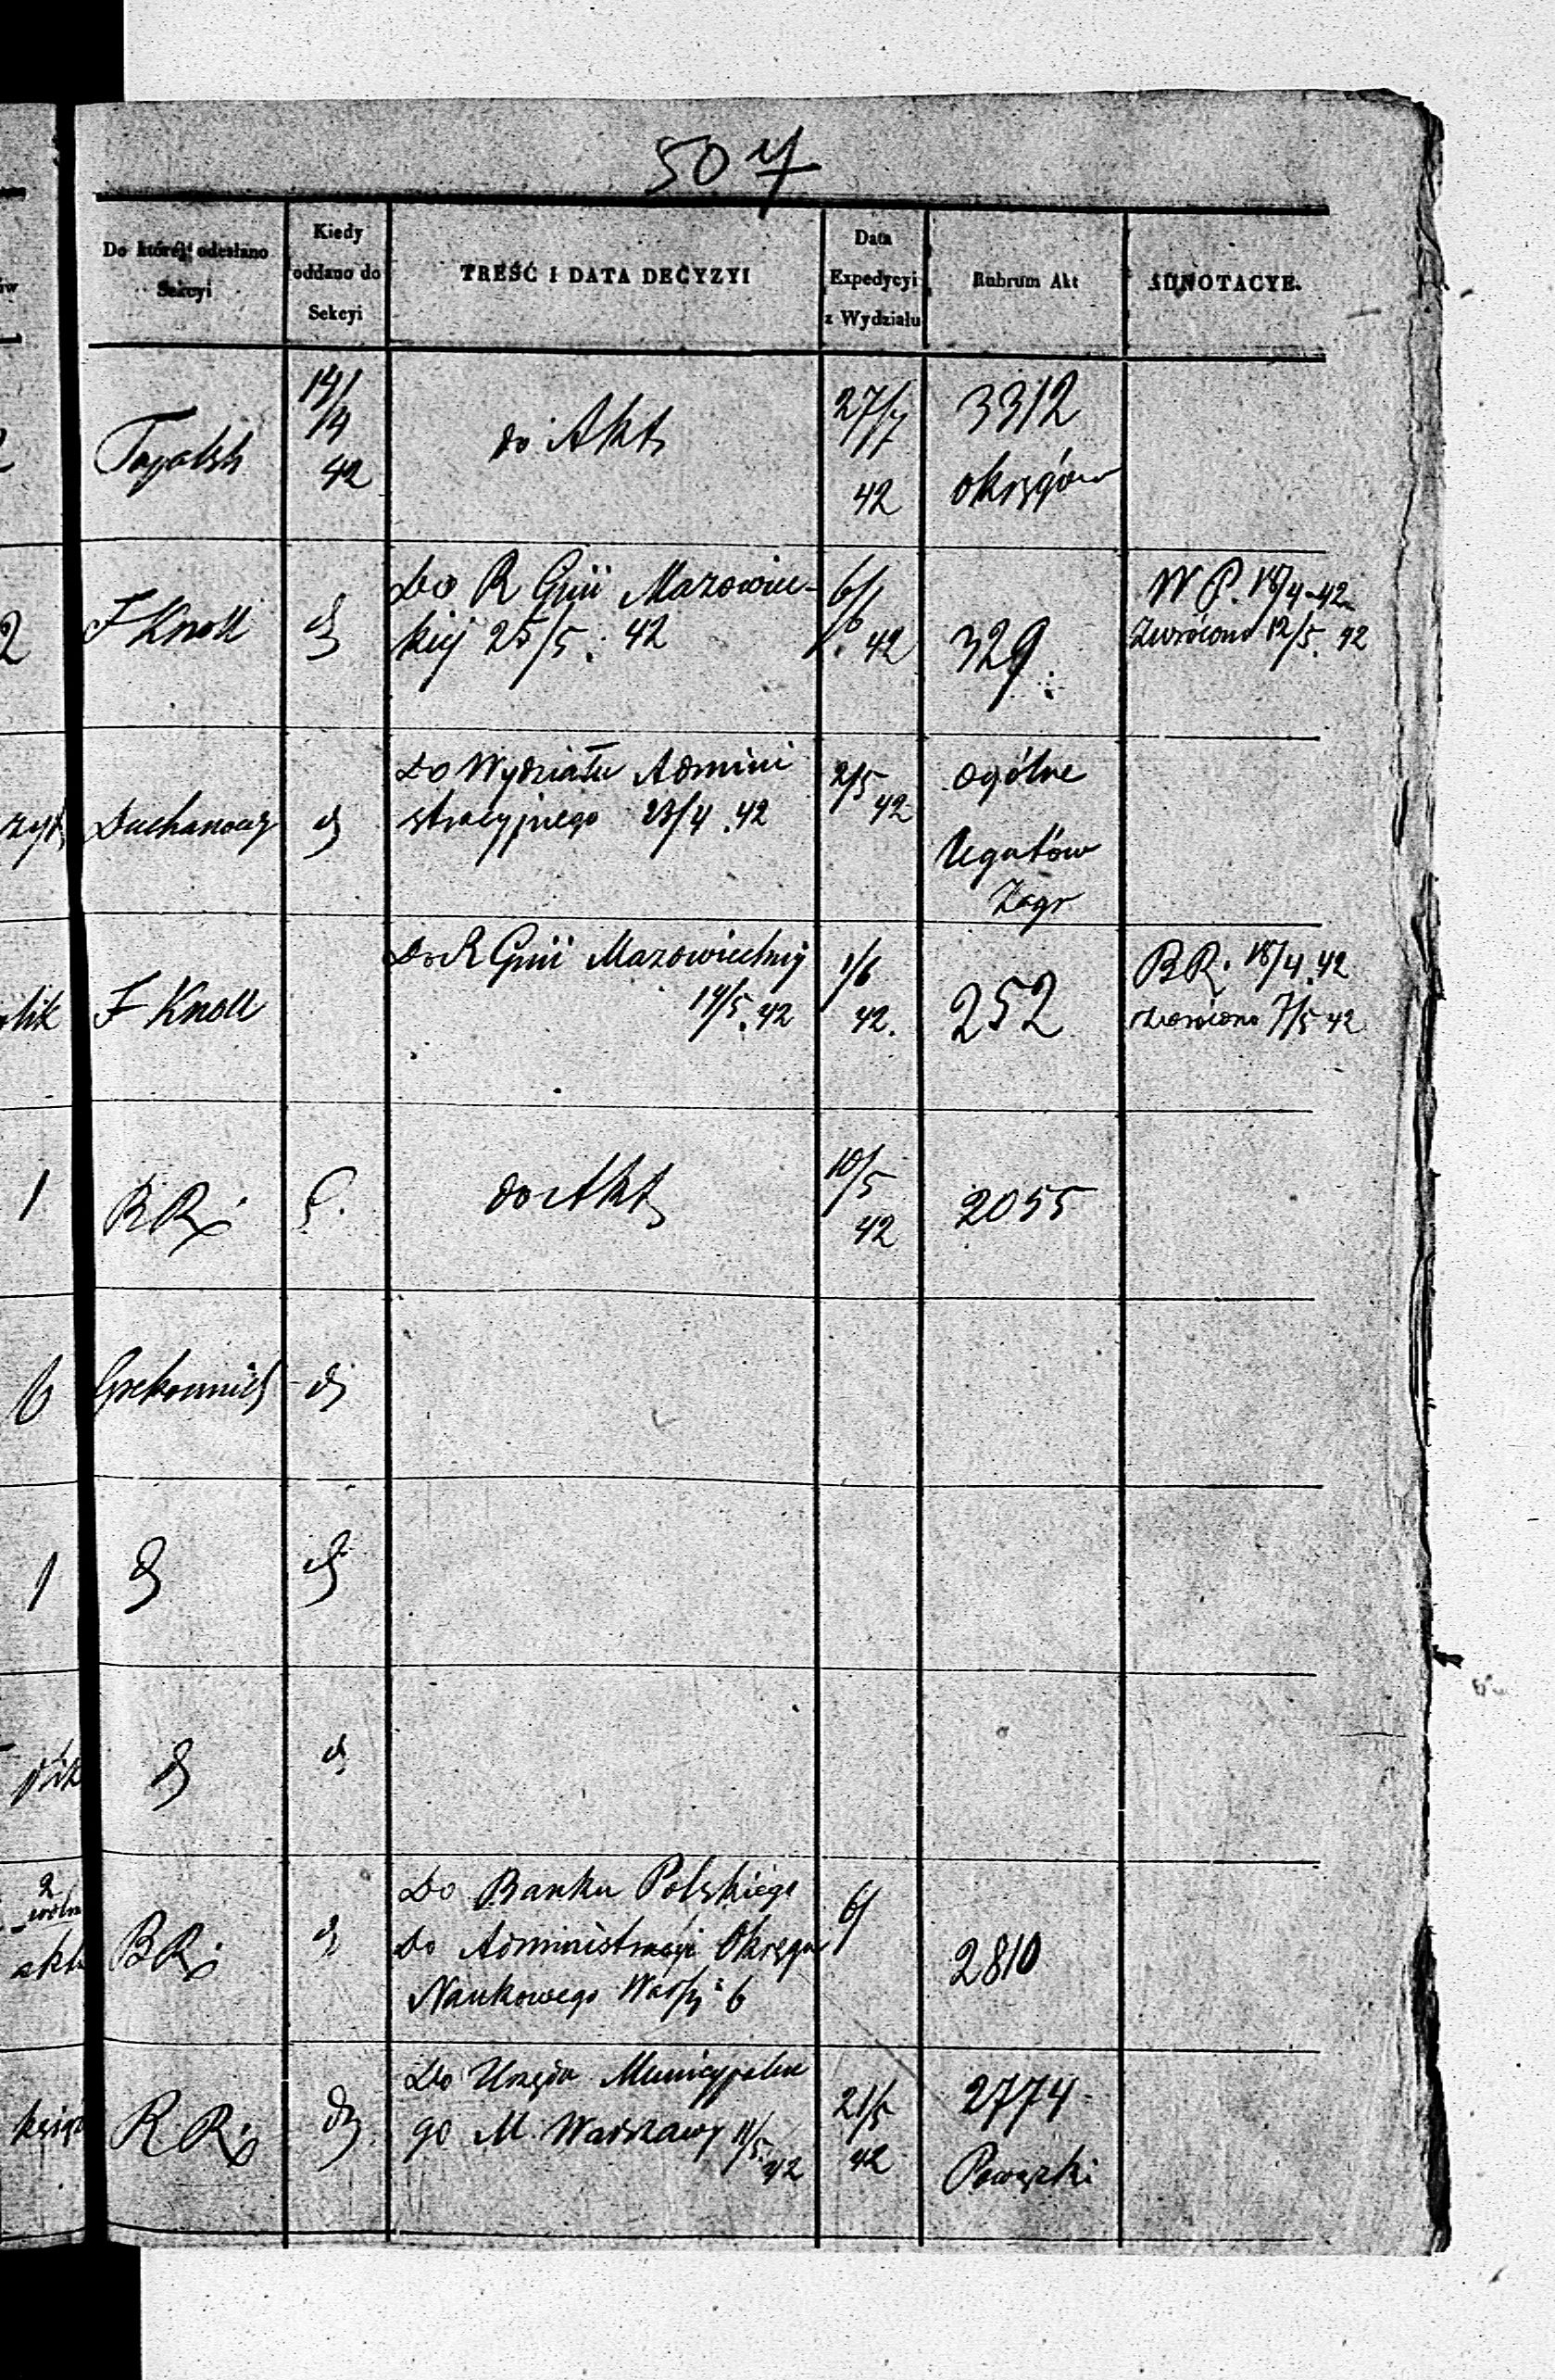 Do któréj odesłano Sekcyi
Kiedy oddano do Sekcyi
TREŚĆ I DATA DECYZYI
Data Expedycyi z Wydziału
Rubrum Akt
ADNOTACYE.
14/4 42
do Akt
27/7 42
3312
okręgów
F Knoll
Do R Gnii Mazowiec-
kiej 25/5. 42
6/6. 42
329
W P. 18/4 42
Zwrócono 12/5. 42
Do Wydziału Admini
stracyjnego 23/4. 42
2/5 42
ogólne
F Knoll
Do R Gnii Mazowieckiej
14/5. 42
1/6 42.
252
BR. 18/4. 42
zwrócono 7/5 42
do Akt
10/5 42
2055
BR
Do Banku Polskiego
Do Administracyi Okręgu
Naukowego
6/
2810
Do Urzędu Municypalne
go M. Warszawy 11/5. 42
21/5 42
2774
Powązki